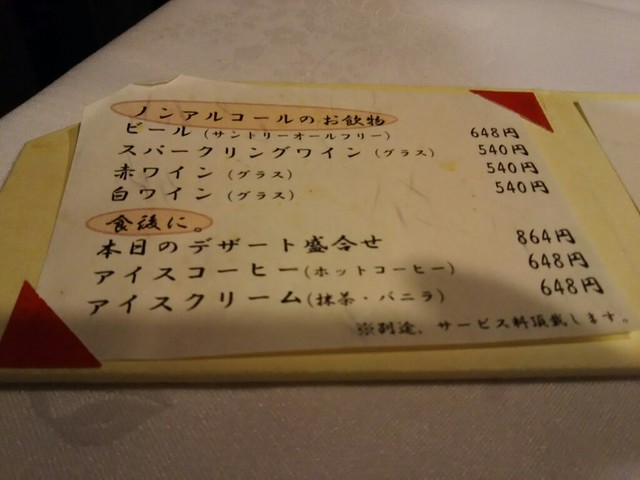 ノンアルコールのお飲物
ビール (サントリーオールフリー) 648円
スパークリングワイン (グラス) 540円
赤ワイン (グラス) 540円
白ワイン (グラス) 540円
食後に。
本日のデザート盛合せ 864円
アイスコーヒー(ホットコーヒー) 648円
アイスクリーム(抹茶・バニラ) 648円
※別途、サービス料頂戴します。